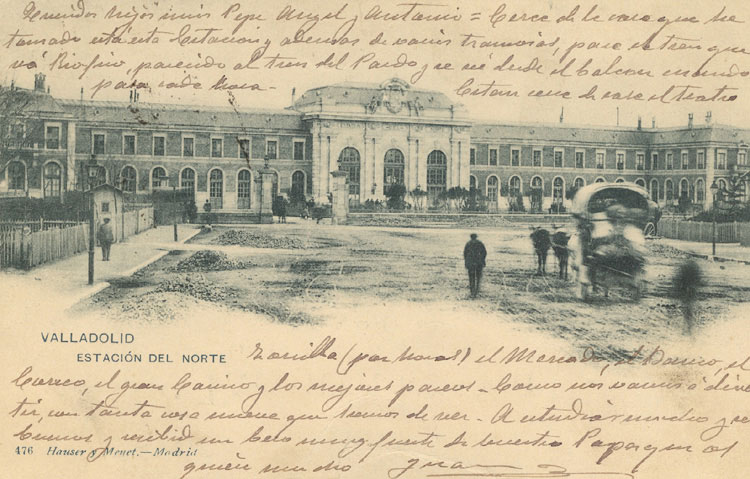 Queridos hijos mios Pepe Angel y Antonio = Cerca de la casa que he
tomado está esta Estación y ademas de varios tranvias, pasa un tren que
va Rioseco, parecido al tren del Pardo y se ve desde el balcon cuando
pasa cada hora. Estan cerca de casa el teatro
VALLADOLID
ESTACIÓN DEL NORTE
Zorrilla (por horas) el Mercado, el Banco, el
Correo, el gran Casino y los mejores paseos = Como nos vamos á diver
tir, con tanta cosa nueva que tenemos de ver. A estudiar mucho y ser
buenos y recibid un beso muy fuerte de vuestro Papa que os
476 Hauser y Menet.—Madrid
quiere mucho Juan